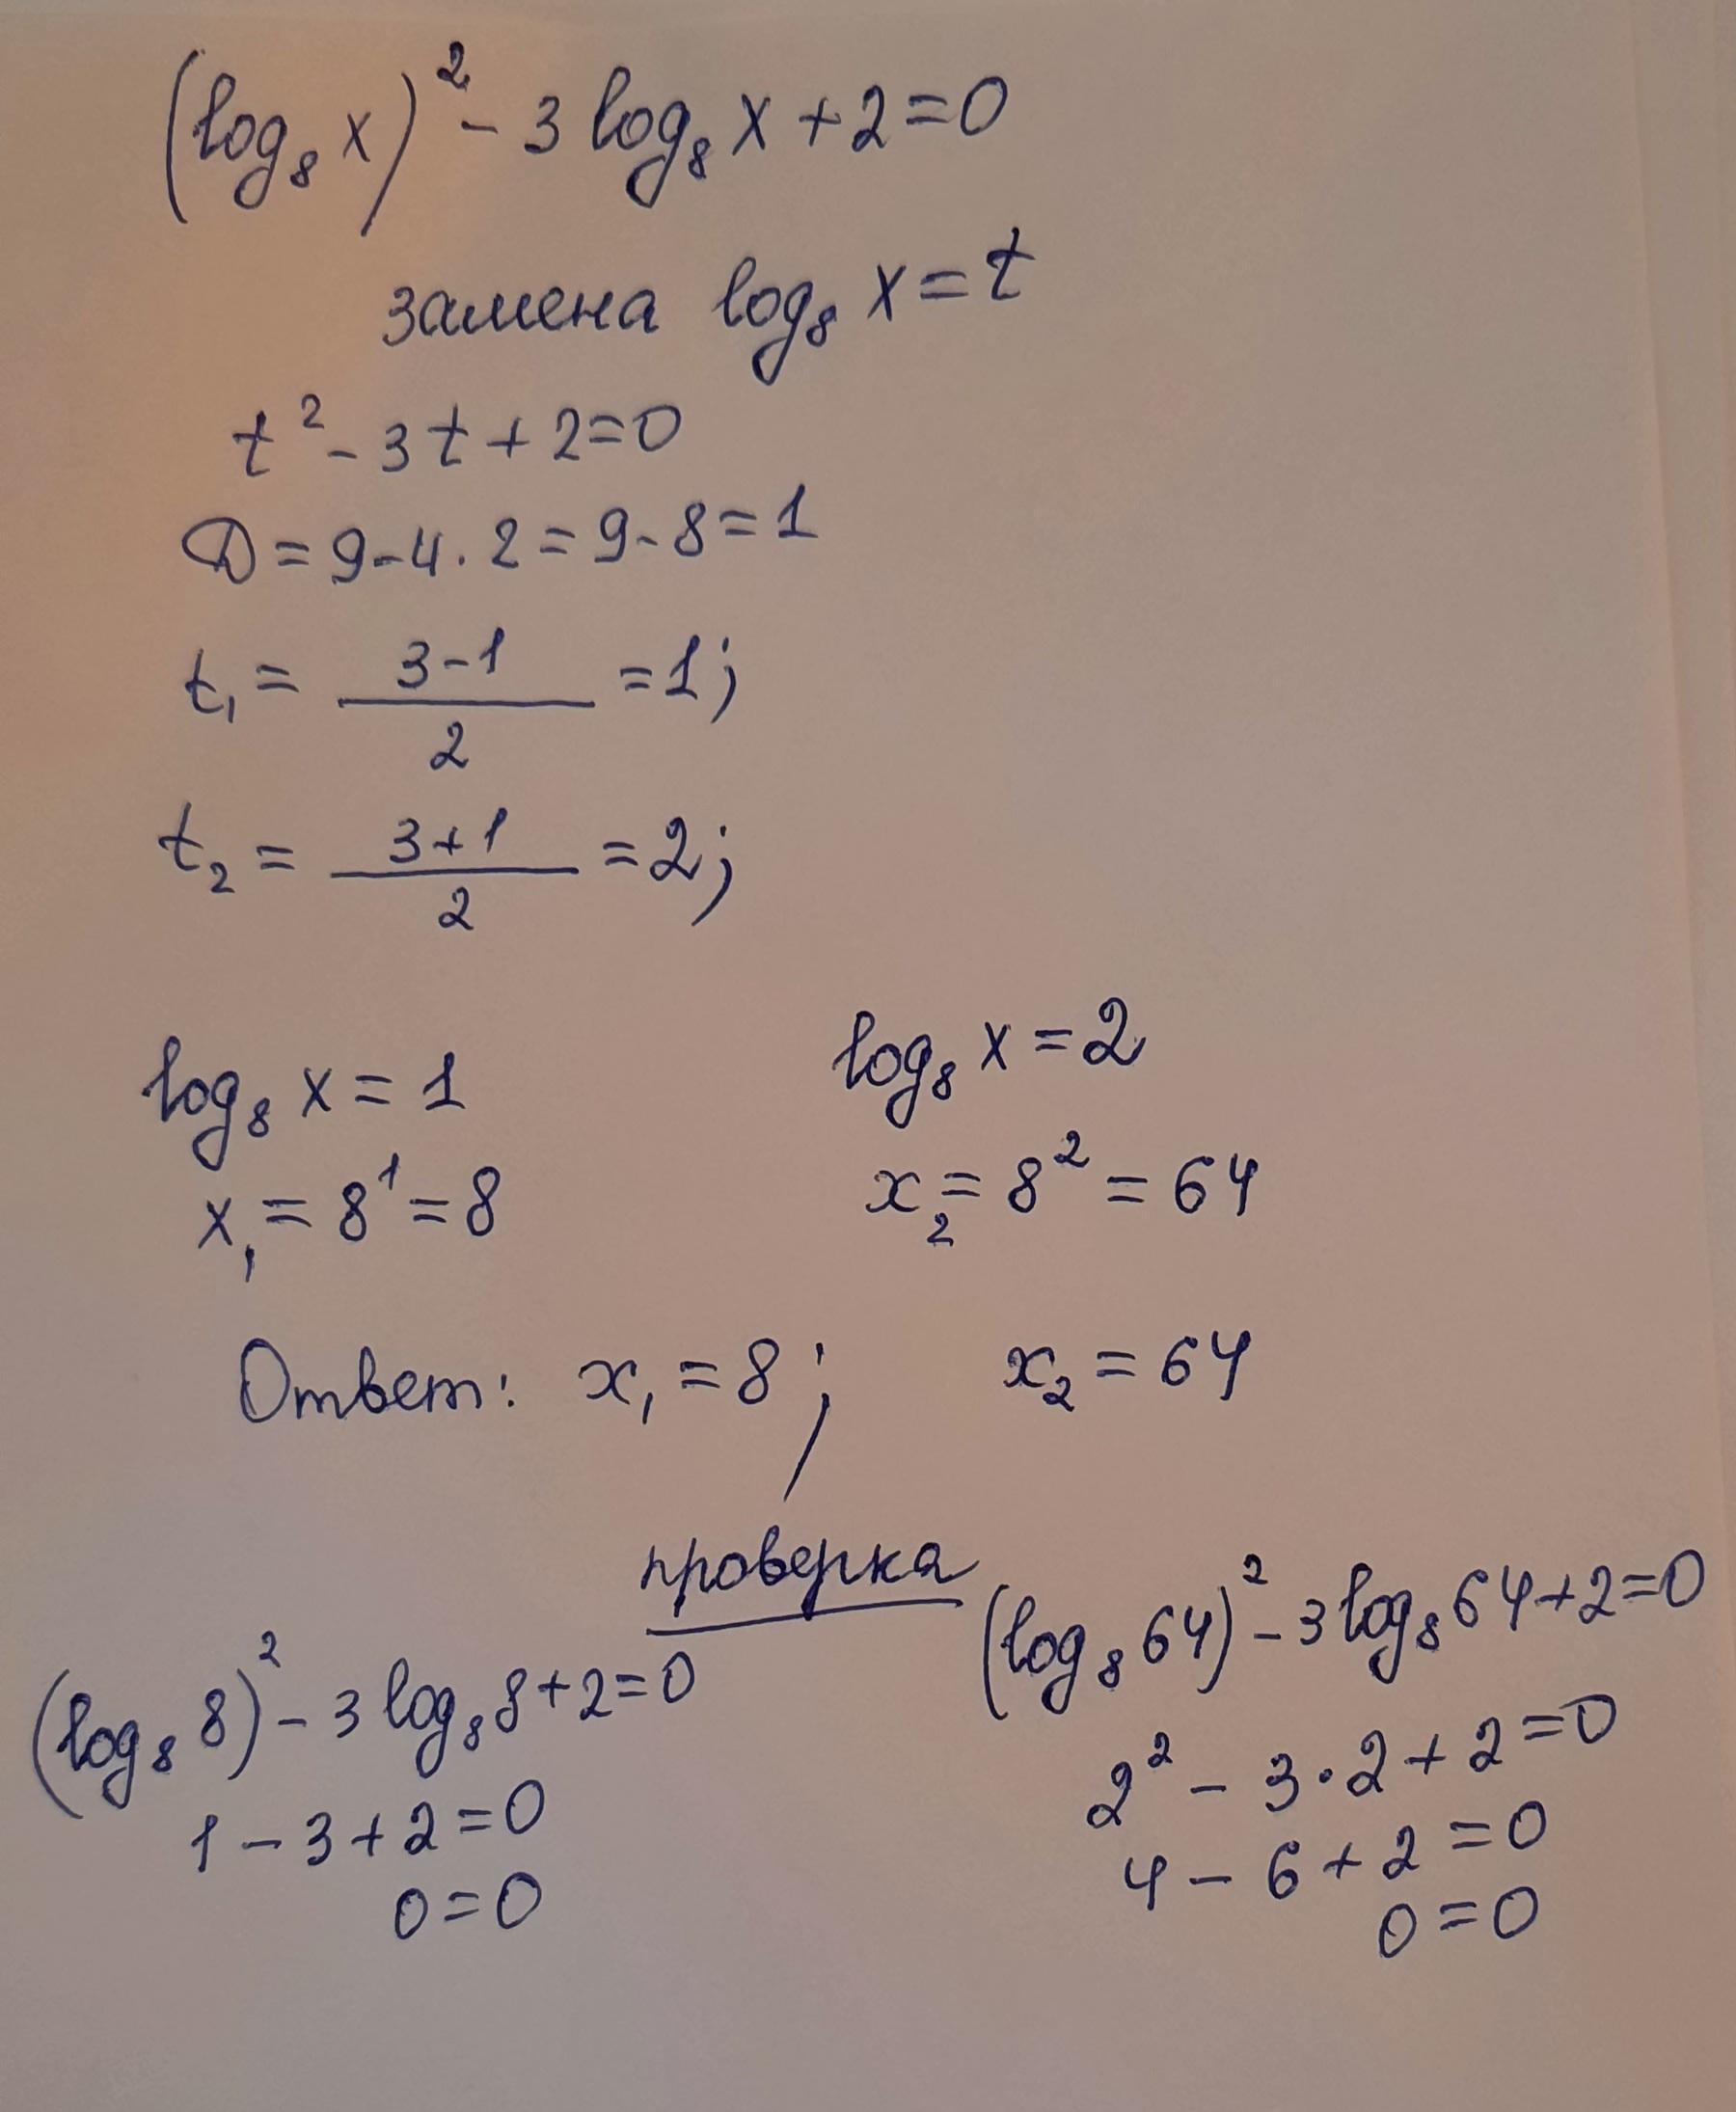 (log₈ x)² - 3 log₈ x + 2 = 0
замена log₈ x = t
t² - 3t + 2 = 0
D = 9 - 4 · 2 = 9 - 8 = 1
t₁ = (3 - 1)/2 = 1;
t₂ = (3 + 1)/2 = 2;
log₈ x = 1
x₁ = 8¹ = 8
log₈ x = 2
x₂ = 8² = 64
Ответ: x₁ = 8; x₂ = 64
проверка
(log₈ 8)² - 3 log₈ 8 + 2 = 0
1 - 3 + 2 = 0
0 = 0
(log₈ 64)² - 3 log₈ 64 + 2 = 0
2² - 3 · 2 + 2 = 0
4 - 6 + 2 = 0
0 = 0